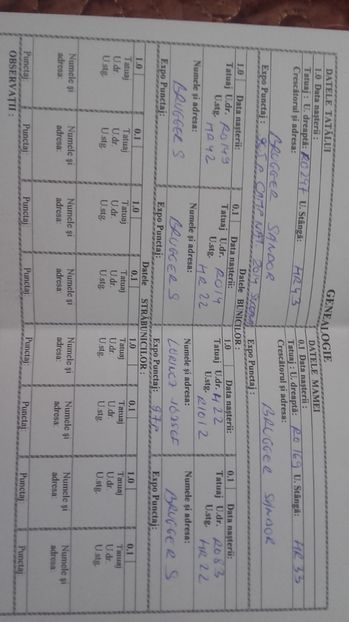 GENEALOGIE
DATELE TATĂLUI
1.0 Data nașterii :
Tatuaj : U. dreaptă: RO247 U. Stângă: HR43
Crescătorul și adresa:
BRUGGER SANDOR
Expo Punctaj :
DATELE MAMEI
0.1 Data nașterii
Tatuaj : U. dreaptă: RO 169 U. Stângă: HR 33
Crescătorul și adresa:
BRUGGER SANDOR
Expo Punctaj :
Datele BUNICILOR :
1.0 Data nașterii:
Tatuaj U.dr.
U.stg. HR 42
Numele și adresa:
BRUGGER S
Expo Punctaj:
0.1 Data nașterii:
Tatuaj U.dr. RO14
U.stg. HR 22
Numele și adresa:
BRUGGER S
Expo Punctaj:
1.0 Data nașterii:
Tatuaj U.dr. 422
U.stg. R1012
Numele și adresa:
LORINCZ JOZSEF
Expo Punctaj: 97
0.1 Data nașterii:
Tatuaj U.dr. RO83
U.stg. HR 22
Numele și adresa:
BRUGGER S
Expo Punctaj:
Datele STRĂBUNICILOR :
1.0 0.1 1.0 0.1 1.0 0.1 1.0 0.1
Tatuaj Tatuaj Tatuaj Tatuaj Tatuaj Tatuaj Tatuaj Tatuaj
U.dr U.dr U.dr U.dr U.dr U.dr U.dr U.dr
U.stg. U.stg. U.stg. U.stg. U.stg. U.stg. U.stg. U.stg.
Numele și Numele și Numele și Numele și Numele și Numele și Numele și Numele și
adresa: adresa: adresa: adresa: adresa: adresa: adresa: adresa:
Punctaj Punctaj Punctaj Punctaj Punctaj Punctaj Punctaj Punctaj
OBSERVAȚII :